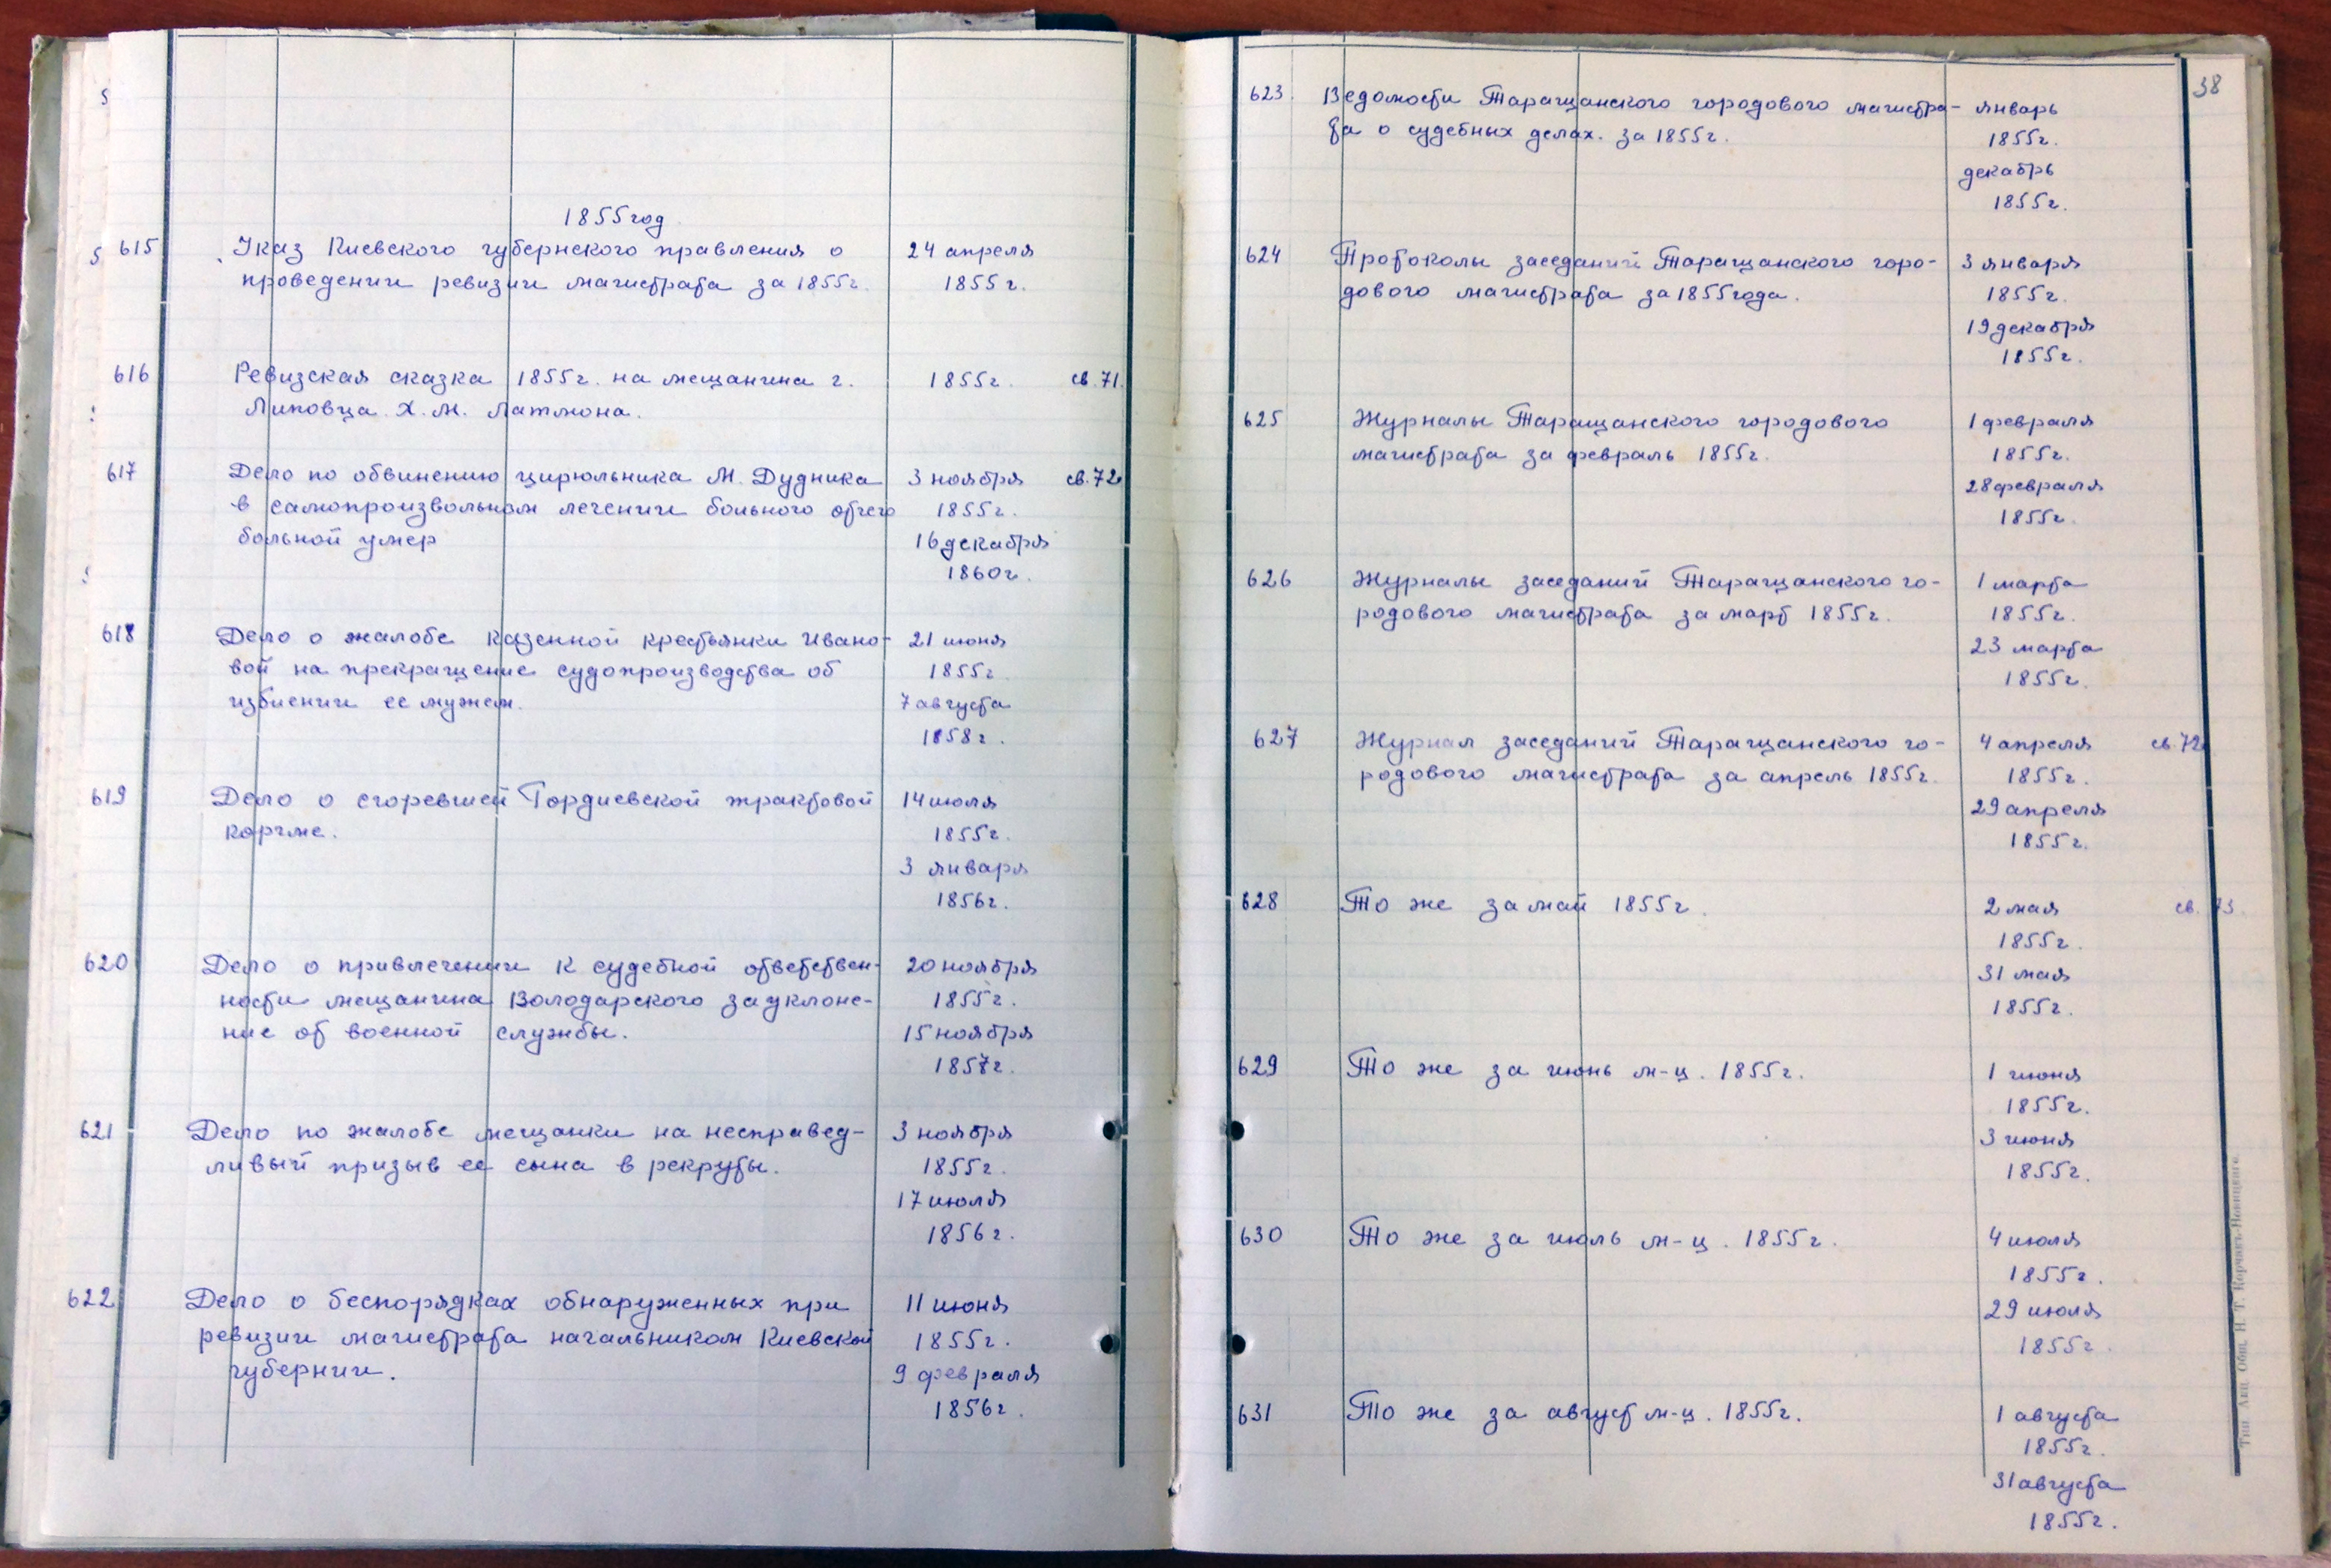 1855 год
615 Указ Киевского губернского правления о 24 апреля
проведении ревизии магистрата за 1855г. 1855 г.
616 Ревизская сказка 1855г. на мещанина г. 1855г. св. 71.
Липовца Х. М. Латмона.
617 Дело по обвинению цирюльника М. Дудника 3 ноября св. 72
в самопроизвольном лечении больного отчего 1855г.
больной умер 16 декабря
1860г.
618 Дело о жалобе казенной крестьянки Ивано- 21 июня
вой на прекращение судопроизводства об 1855г
избиении ее мужем. 7 августа
1858г.
619 Дело о сгоревшей Гордиевской трактовой 14 июля
корчме. 1855г.
3 января
1856г.
620 Дело о привлечении к судебной ответствен- 20 ноября
ности мещанина Володарского за уклоне- 1855г.
ние от военной службы. 15 ноября
1857г.
621 Дело по жалобе мещанки на несправед- 3 ноября
ливый призыв ее сына в рекруты. 1855г.
17 июля
1856г.
622 Дело о беспорядках обнаруженных при 11 июня
ревизии магистрата начальником Киевской 1855г.
губернии. 9 февраля
1856г.
38
623. Ведомости Таращанского городового магистра- январь
та о судебных делах. за 1855г. 1855г.
декабрь
1855г.
624 Протоколы заседаний Таращанского горо- 3 января
дового магистрата за 1855 года. 1855г.
19 декабря
1855г.
625 Журналы Таращанского городового 1 февраля
магистрата за февраль 1855г. 1855г.
28 февраля
1855г.
626 Журналы заседаний Таращанского го- 1 марта
родового магистрата за март 1855г. 1855г.
23 марта
1855г.
627 Журнал заседаний Таращанского го- 4 апреля св. 72
родового магистрата за апрель 1855г. 1855г.
29 апреля
1855г.
628 То же за май 1855г. 2 мая св. 73.
1855г.
31 мая
1855г.
629 То же за июнь м-ц. 1855г. 1 июня
1855г.
3 июня
1855г.
630 То же за июль м-ц. 1855г. 4 июля
1855г.
29 июля
1855г.
631 То же за август м-ц. 1855г. 1 августа
1855г.
31 августа
1855г.
Тип. Акц. Общ. Н. Т. Корчакъ-Новицкаго.